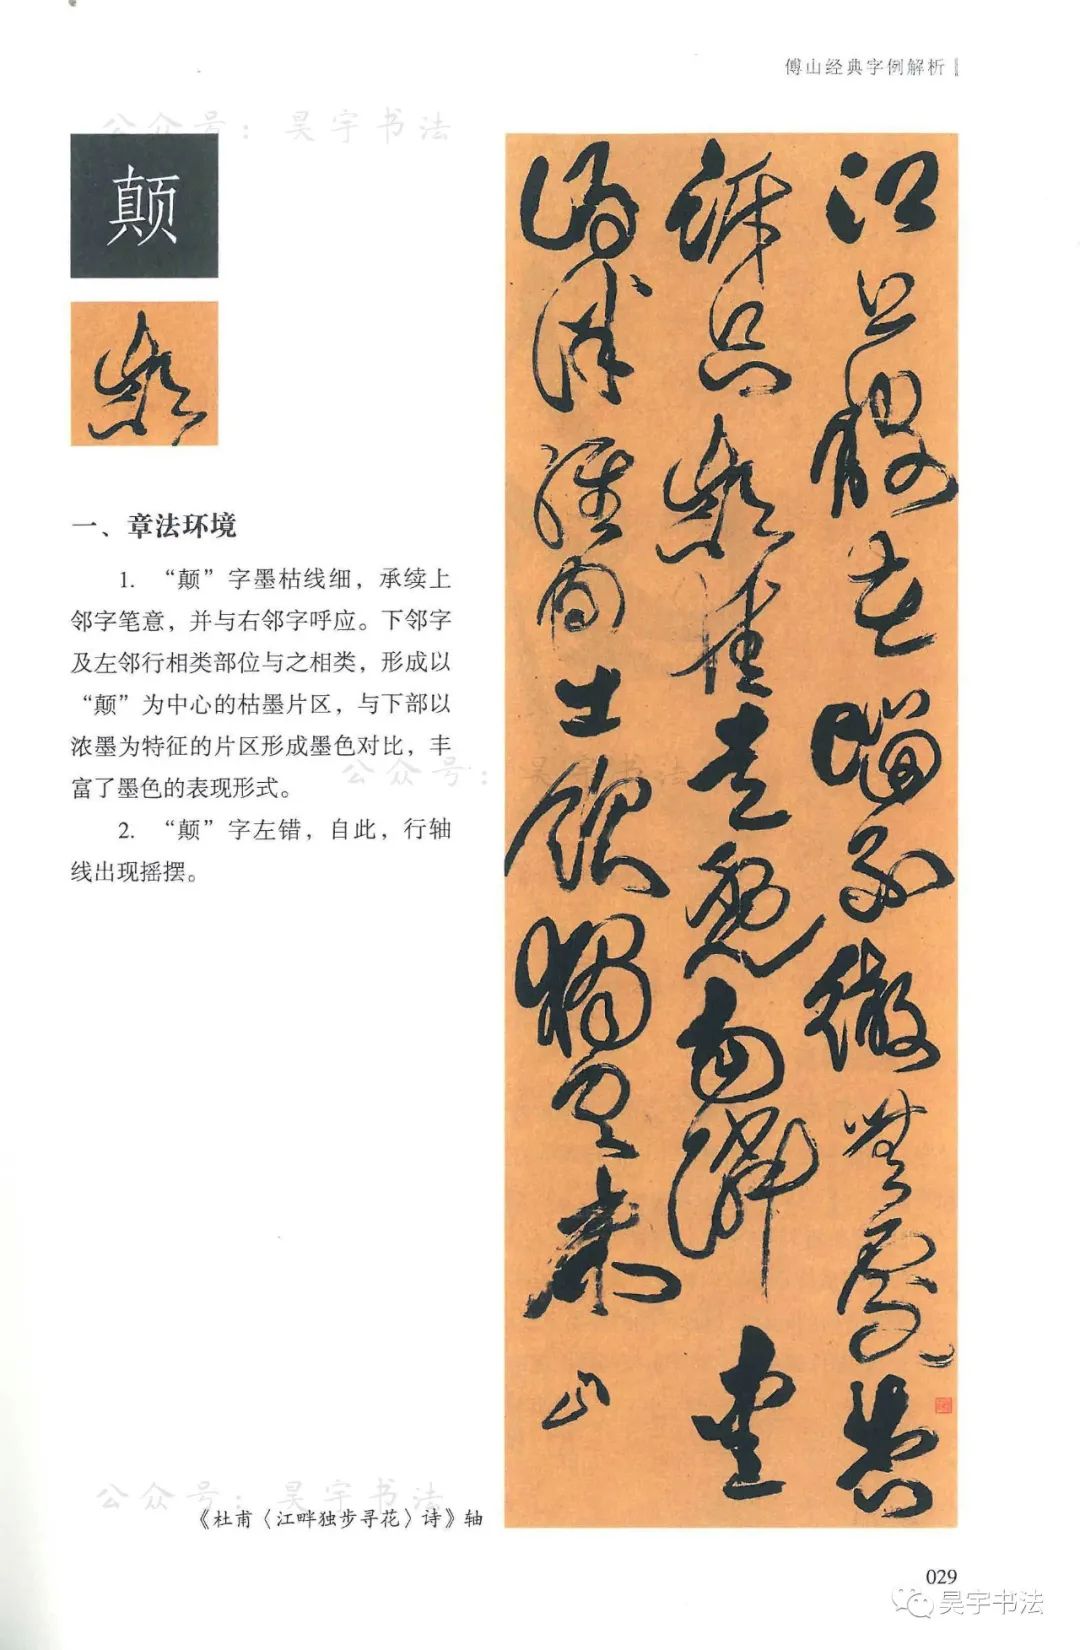 傅山经典字例解析
公众号：昊宇书法
颠
顛
江上被花惱不徹無處告
訴只顛狂走覓南鄰愛
酒伴經旬出飲獨空牀
山
一、章法环境
1. “颠”字墨枯线细，承续上
邻字笔意，并与右邻字呼应。下邻字
及左邻行相类部位与之相类，形成以
“颠”为中心的枯墨片区，与下部以
浓墨为特征的片区形成墨色对比，丰
富了墨色的表现形式。
公众号：昊宇书法
2. “颠”字左错，自此，行轴
线出现摇摆。
公众号：昊宇书法
《杜甫〈江畔独步寻花〉诗》轴
029
昊宇书法